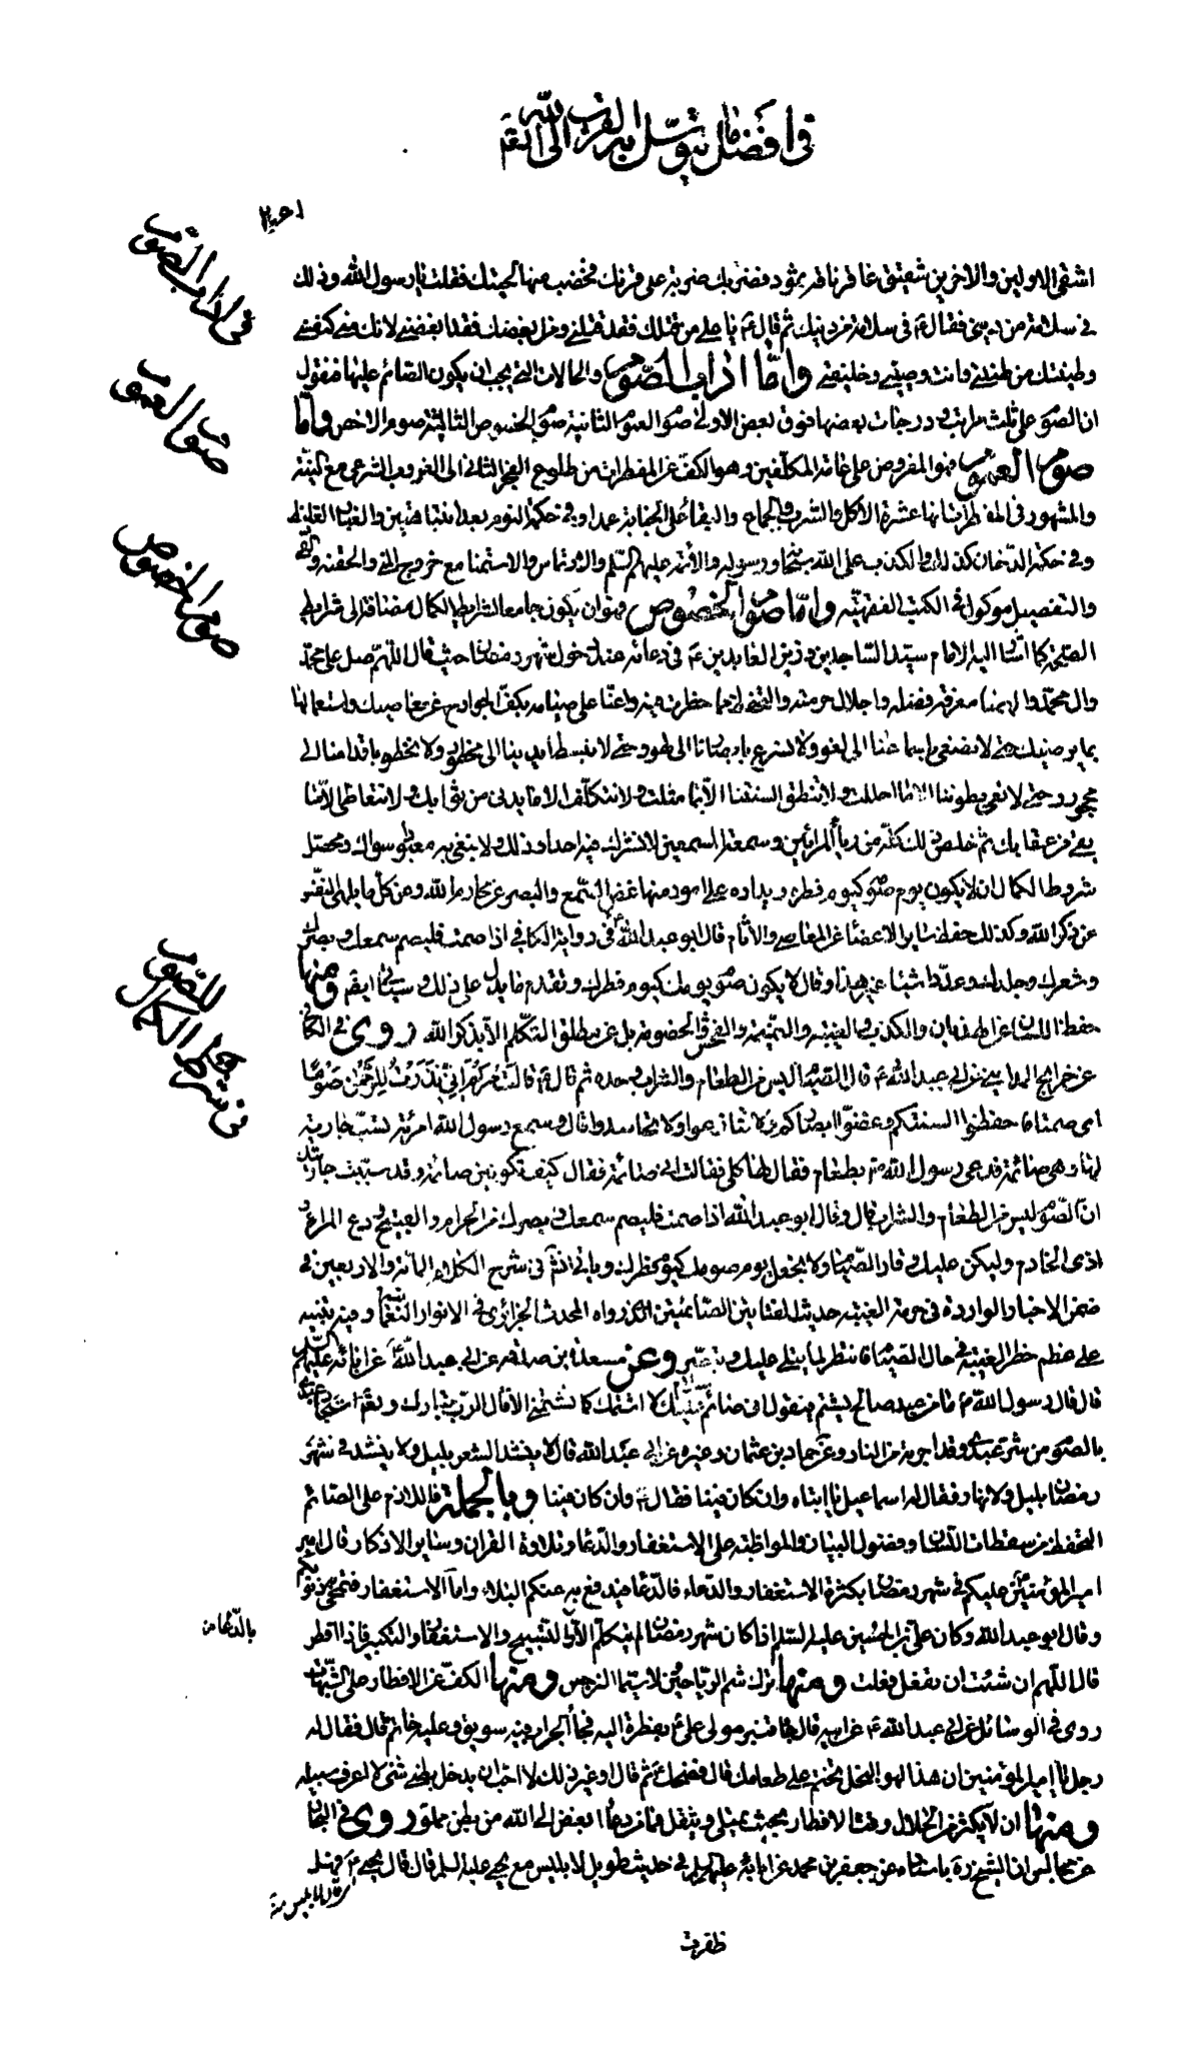 في أفضل ما يتوسل به القرب الى الله
في آداب الصوم
اشقى الاولين والاخرين شقيق عاقر ناقة ثمود فضربك ضربة على قرنك فخضب منها لحيتك فقلت يا رسول الله وذلك
في سلامة من ديني فقال ع في سلامة من دينك ثم قال ع يا علي من قتلك فقد قتلني ومن ابغضك فقد ابغضني لانك مني كنفسي
وطينتك من طينتي وانت وصيي وخليفتي واما اداب الصوم والحالات التي يجب ان يكون الصائم عليها فنقول
ان الصوم على ثلث مراتب ودرجات بعضها فوق بعض الاولى صوم العموم الثانية صوم الخصوص الثالثة صوم الاخص واما
صوم العموم
صوم العموم فهو المفروض على عامة المكلفين وهو الكف عن المفطرات من طلوع الفجر الثاني الى الغروب الشرعي مع النية
والمشهور في المفطرات انها عشرة الاكل والشرب والجماع والبقاء على الجنابة عمدا وفي حكمه النوم بعد انتباهتين والغبار الغليظ
وفي حكمه الدخان كذلك والكذب على الله سبحانه ورسوله والائمة عليهم السلام والارتماس والاستمناء مع خروج المني والحقنة والقئ
صوم الخصوص
والتفصيل موكول في الكتب الفقهية واما صوم الخصوص فهو ان يكون جامعا لشرايط الكمال مضافة الى شرايط
الصحة كما اشار اليه الامام سيد الساجدين وزين العابدين ع في دعائه عند دخول شهر رمضان حيث قال اللهم صل على محمد
وال محمد والهمنا معرفة فضله واجلال حرمته والتحفظ مما حظرت فيه واعنا على صيامه بكف الجوارح عن معاصيك واستعمالها
بما يرضيك حتى لا نصغي باسماعنا الى لغو ولا نسرع بابصارنا الى لهو وحتى لا نبسط ايدينا الى محظور ولا نخطو باقدامنا الى
محجور وحتى لا تعي بطوننا الا ما احللت ولا تنطق السنتنا الا بما مثلت ولا نتكلف الا ما يدني من ثوابك ولا نتعاطى الا الذي
يقي من عقابك ثم خلص ذلك كله من رياء المرائين وسمعة المسمعين لا نشرك فيه احدا دونك ولا نبتغي به مرادا سواك ومحصل
شروط الكمال ان لا يكون يوم صومه كيوم فطره ومداره على امور منها غض السمع والبصر عن محارم الله وعن كل ما يلهى النفس
عن ذكر الله وكذلك حفظ ساير الاعضاء عن المعاصي والاثام قال ابو عبد الله ع في رواية الكافي اذا صمت فليصم سمعك وبصرك
من شرايط الكمال للصوم
وشعرك وجلدك وعدد اشياء غير هذا وقال لا يكون صومك كيوم فطرك وتقدم ما يدل على ذلك وسيأتي ايضا ومنها
حفظ اللسان عن الهذيان والكذب والغيبة والنميمة والفحش والخصومة بل عن مطلق التكلم الا بذكر الله روى في الكافي
عن جراح المدايني عن ابي عبد الله ع قال الصيام ليس من الطعام والشراب وحده ثم قال ع قالت مريم اني نذرت للرحمن صوما
اي صمتا فاحفظوا السنتكم وغضوا ابصاركم ولا تنازعوا ولا تحاسدوا قال وسمع رسول الله امرئة تسب جارية
لها وهي صائمة فدعى رسول الله ص بطعام فقال لها كلي فقالت اني صائمة فقال كيف تكونين صائمة وقد سببت جاريتك
ان الصوم ليس من الطعام والشراب قال وقال ابو عبد الله اذا صمت فليصم سمعك وبصرك من الحرام والقبيح ودع المراء و
اذى الخادم وليكن عليك وقار الصيام ولا تجعل يوم صومك كيوم فطرك وياتي انشاء في شرح الكلام المائة والاربعين في
ضمن الاخبار الواردة في حرمة الغيبة حديث المغتابتين الصائمتين الذي رواه المحدث الجزائري في الانوار النعمانية وفيه تنبيه
على عظم خطر الغيبة في حال الصيام فانتظر لما يتلى عليك وتبصر وعن مسعدة بن صدقة عن ابي عبد الله ع عن ابائه عليهم السلام
قال قال رسول الله ص ما من عبد صالح يشتم فيقول اني صائم سلام عليك لا اشتمك كما تشتمني الا قال الرب تبارك وتعالى استجار عبدي
بالصوم من شر عبدي وقد اجرته من النار وعن حماد بن عثمان وغيره عن ابي عبد الله قال لا ينشد الشعر بليل ولا ينشد في شهر
رمضان بليل ولا نهار فقال له اسماعيل يا ابتاه وان كان فينا فقال ع وان كان فينا وبالجملة فاللازم على الصائم
التحفظ من سقطات اللسان وفضول البيان والمواظبة على الاستغفار والدعاء وتلاوة القران وساير الاذكار قال امير
امير المؤمنين عليكم في شهر رمضان بكثرة الاستغفار والدعاء فالدعاء فيدفع به عنكم البلاء واما الاستغفار فتمحى ذنوبكم
وقال ابو عبد الله وكان علي بن الحسين عليه السلم اذا كان شهر رمضان لم يتكلم الا بالتسبيح والاستغفار والتكبير فاذا افطر
بالدعاء
قال اللهم ان شئت ان تفعل فعلت ومنها ترك شم الرياحين لا سيما النرجس ومنها الكف عن الافطار على الشبهات
روى في الوسائل عن ابي عبد الله ع عن ابيه قال جاء قنبر مولى علي ع بفطرة اليه فجاء بجراب فيه سويق وعليه خاتم قال فقال له
رجل يا امير المؤمنين ان هذا لهو البخل تختم على طعامك قال فضحك ثم قال او غير ذلك لا احب ان يدخل بطني شئ لا اعرف سبيله
ومنها ان لا يكثر من الحلال وقت الافطار بحيث يمتلي ويثقل فما من وعاء ابغض الى الله من بطن مملو روى في البحار
عن مجالس ابن الشيخ ره باسناده عن جعفر بن محمد عن ابائه عليهم السلم في حديث طويل لابليس مع يحيى عليه السلم قال قال يحيى ع فهل
ظفرت